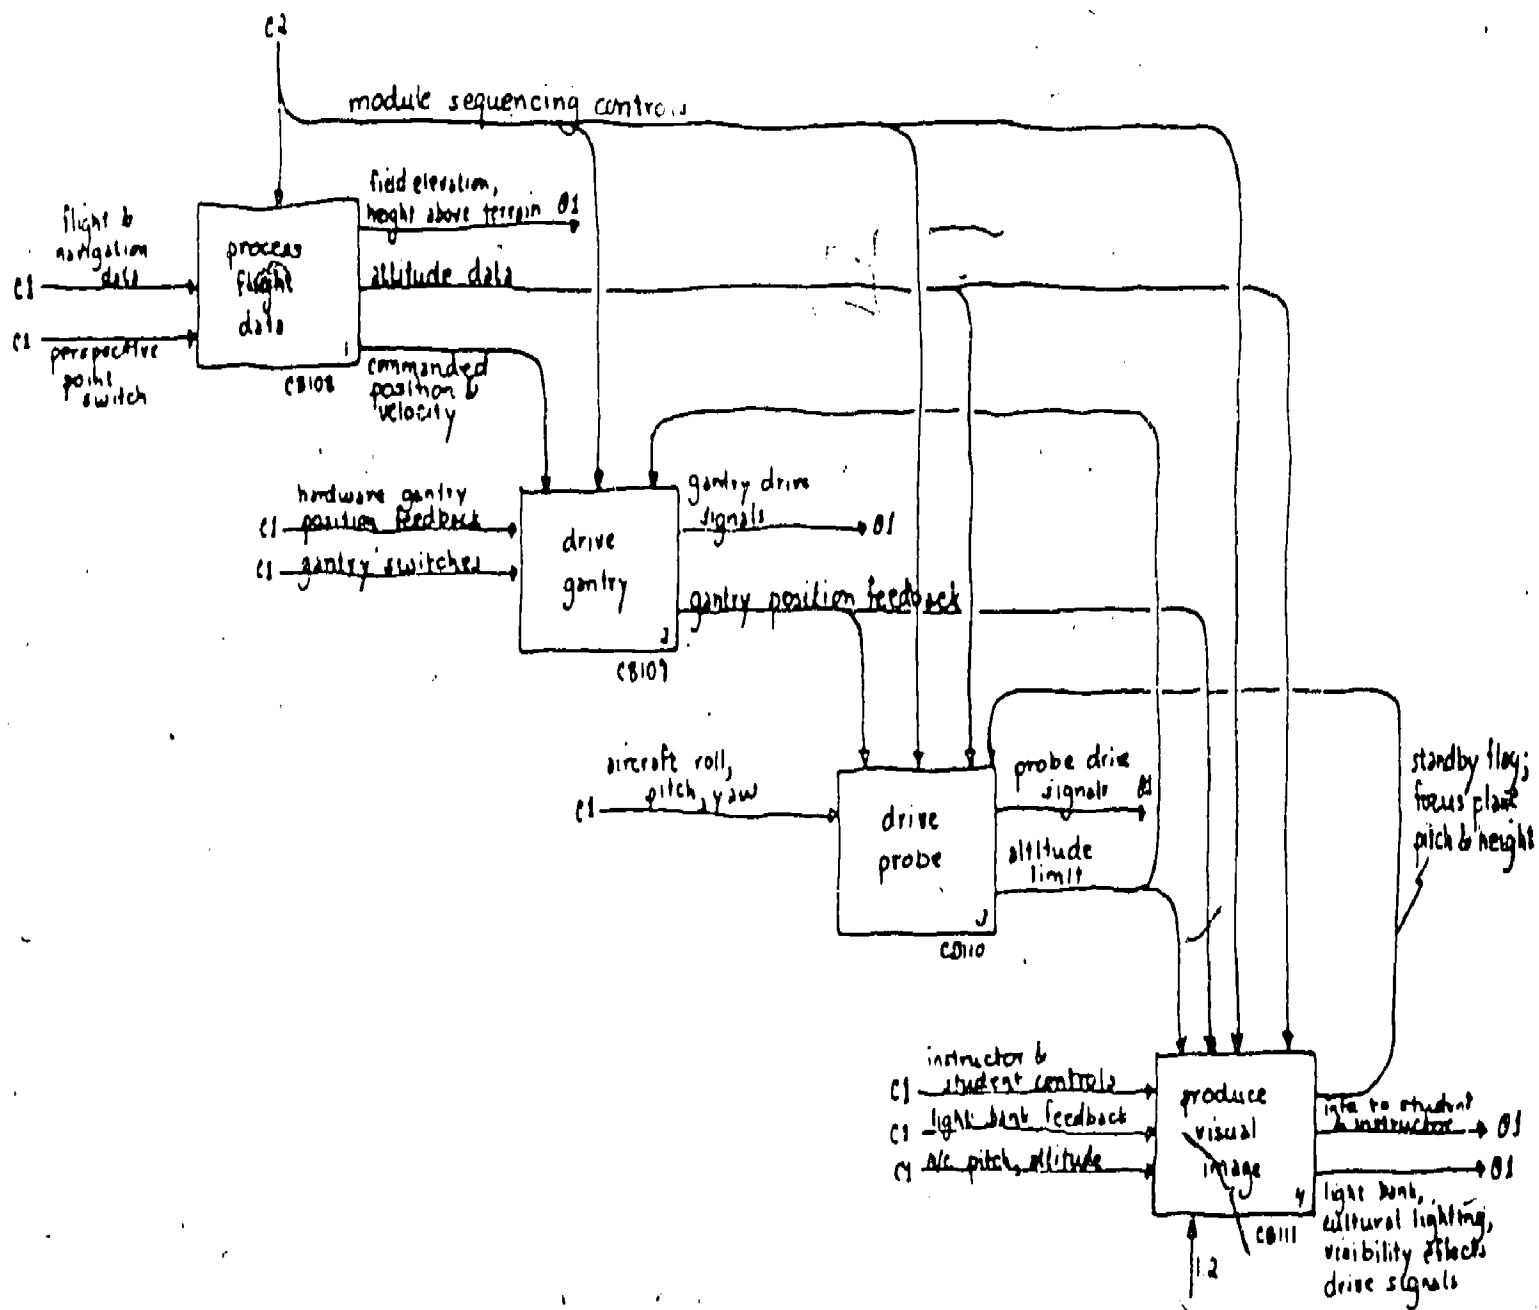 C2
module sequencing controls
field elevation,
height above terrain 01
flight &
navigation
data
C1
process
flight
data
1
CB108
altitude data
C1
perspective
point
switch
commanded
position &
velocity
hardware gantry
position feedback
C1
C1 gantry switches
drive
gantry
2
CB109
gantry drive
signals
01
gantry position feedback
aircraft roll,
pitch, yaw
C1
drive
probe
3
CB110
probe drive
signals 01
altitude
limit
standby flag;
focus plane
pitch & height
instructor &
student controls
C1
C1 light bank feedback
C1 A/C pitch, altitude
produce
visual
image
4
CB111
info to student
& instructor 01
01
light bank,
cultural lighting,
visibility effects
drive signals
12